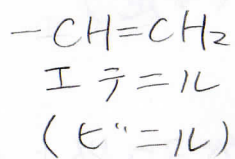 -CH=CH₂
エテニル
(ビニル)